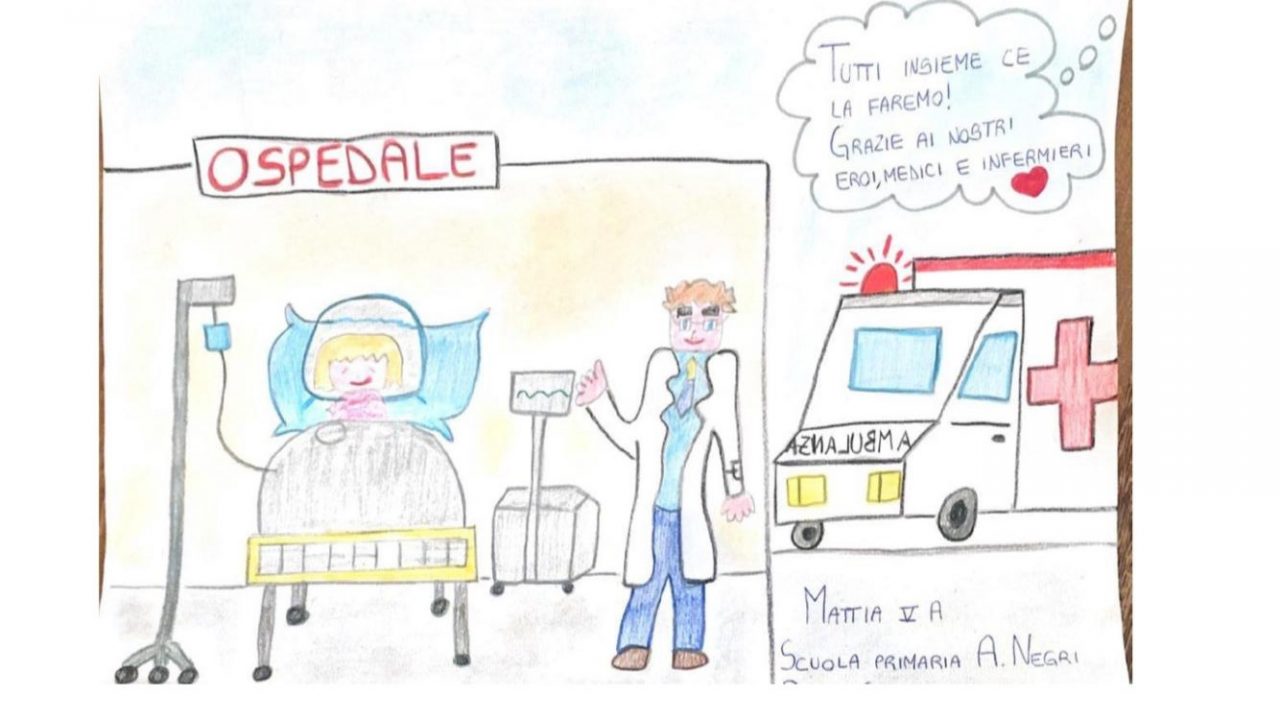 OSPEDALE
TUTTI INSIEME CE
LA FAREMO!
GRAZIE AI NOSTRI
EROI, MEDICI E INFERMIERI
AMBULANZA
MATTIA V A
SCUOLA PRIMARIA A. NEGRI